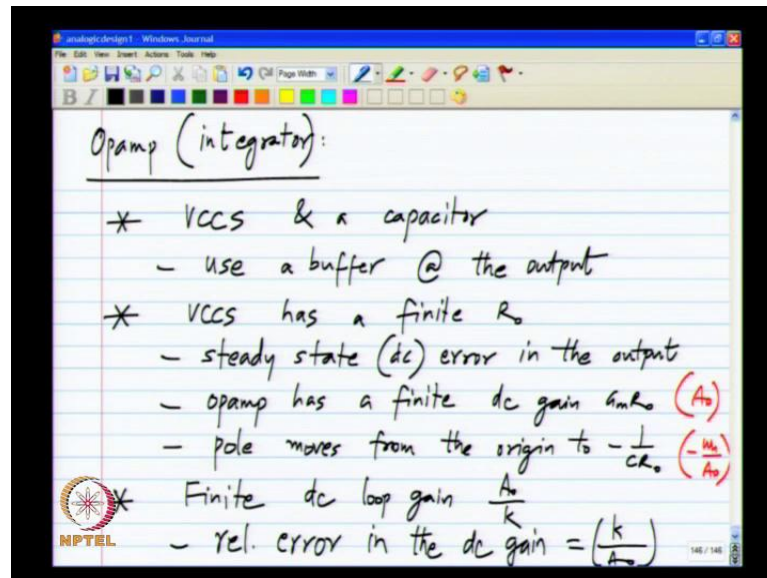 analogicdesign1 - Windows Journal
File Edit View Insert Actions Tools Help
Page Width
B I
Opamp (integrator):
* VCCS & a capacitor
- use a buffer @ the output
* VCCS has a finite R₀
- steady state (dc) error in the output
- opamp has a finite dc gain GmR₀ (A₀)
- pole moves from the origin to - 1/CR₀ (- ωu/A₀)
* Finite dc loop gain A₀/k
- rel. error in the dc gain = (k/A₀)
NPTEL
146 / 146